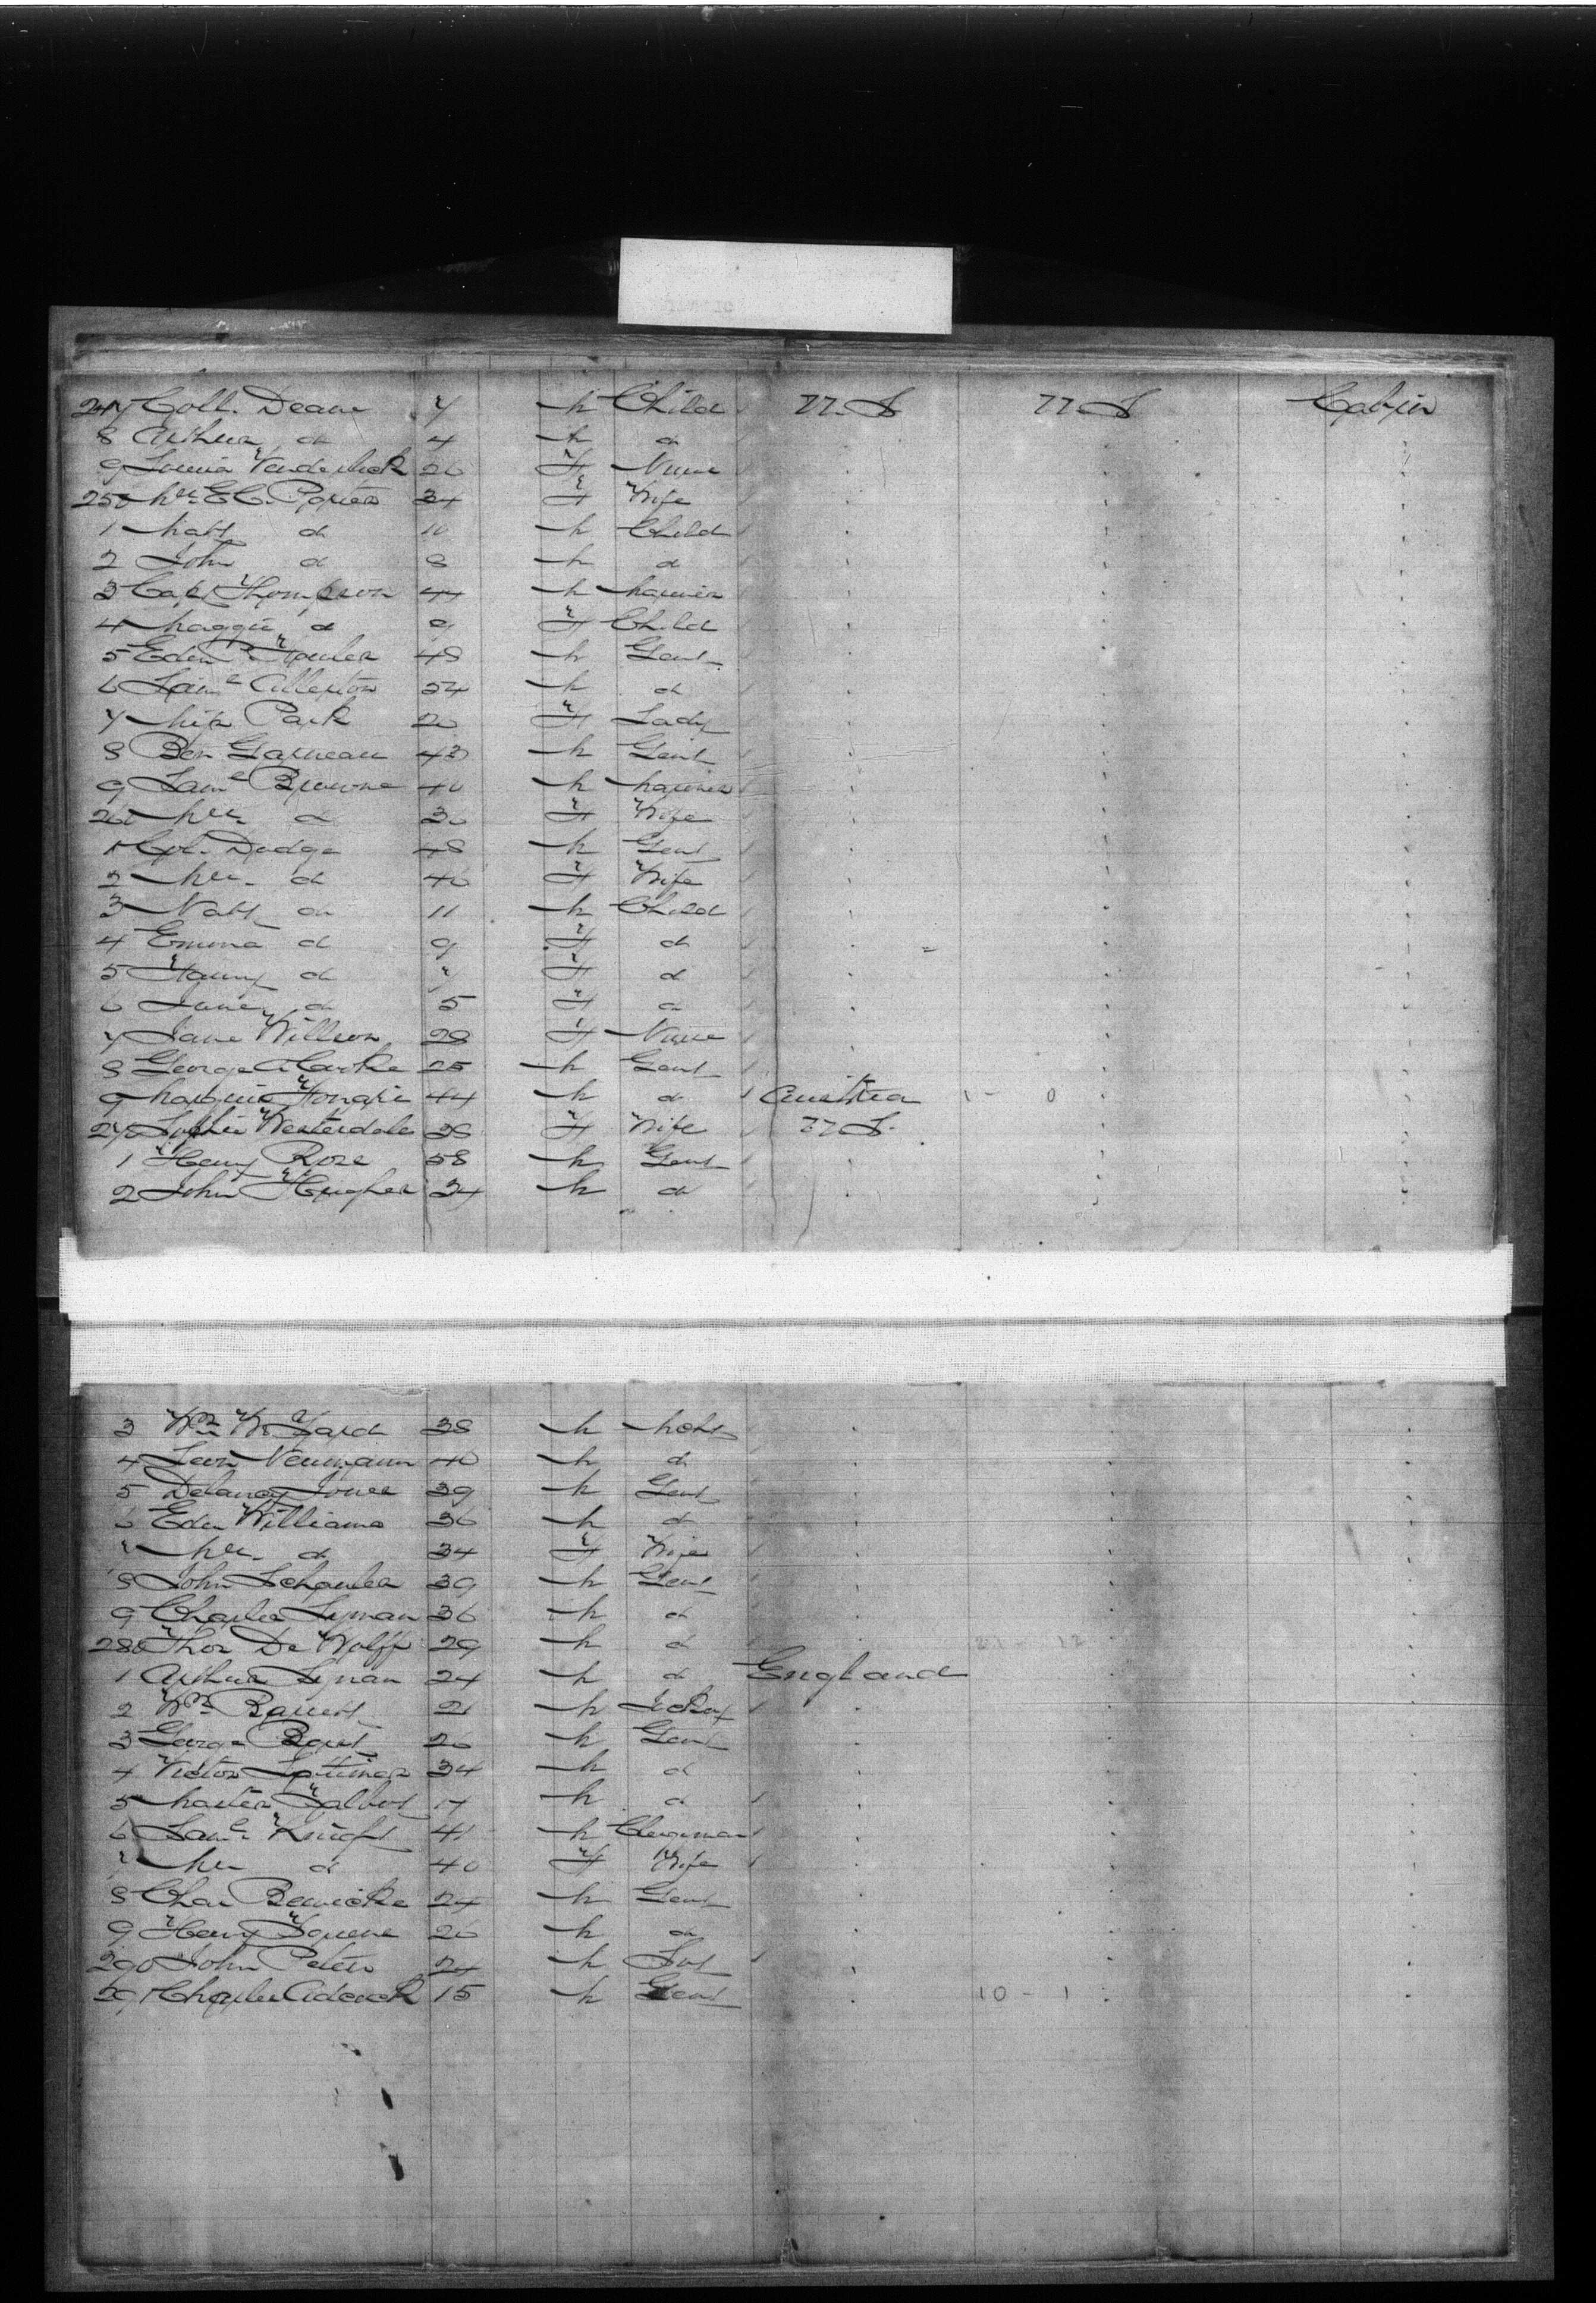 247 Coll. Deane 7 M Child U.S U.S Cabin
8 Arthur do 4 M do
9 Louisa 26 F Nurse
250 Mrs E C. Porter 34 F Wife
1 Natt do 10 M Child
2 John do 8 M do
3 Capt Thompson 44 M Mariner
4 Maggie do 9 F Child
5 Edw P. Fowler 48 M Gent
6 Saml Allerton 54 M do
7 Miss Park 20 F Lady
8 Ben Garneau 43 M Gent
9 Saml Browne 40 M Mariner
260 Mrs do 36 F Wife
1 Col. Dodge 48 M Gent
2 Mrs. do 40 F Wife
3 Natt do 11 M Child
4 Emma do 9 F do
5 Fanny do 7 F do
6 June do 5 F do
7 Jane Willson 28 F Nurse
8 George A Clarke 25 M Gent
9 44 M do Austria 1 - 0
270 Sophie Westerdale 38 F Wife U S.
1 Henry Rose 58 M Gent
2 John Hughes 34 M do
3 Wm W. Yard 38 M
4 Leon Neumann 40 M do
5 Delancy Jones 39 M Gent
6 Edw Williams 36 M do
7 Mrs. do 34 F Wife
8 John 39 M Gent
9 Charles Lyman 36 M do
280 Thos De Wolff 29 M do
1 Arthur Lyman 24 M do England
2 Wm Barrett 21 M Jockey
3 George 26 M Gent
4 Victor 34 M do
5 Master Talbot 17 M do
6 Saml. Knight 41 M Clergyman
7 Mrs do 40 F Wife
8 Chas Berwicke 24 M Gent
9 Henry Squire 26 M do
290 John Peters 24 M
291 Charles Adcock 15 M Gent 10 - 1